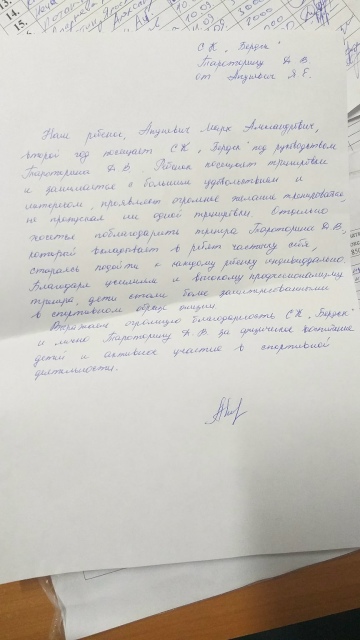 13.
14.
15.
СК „Бердск"
Тараторину Д. В.
от Ануńевич Я. Г.
Наш ребенок, Марк Александрович,
второй год посещает СК „Бердск" под руководством
Тараторина Д.В. Ребенок посещает тренировки
и занимается с большим удовольствием и
интересом, проявляет огромное желание тренироваться,
не пропускал ни одной тренировки. Отдельно
хочется поблагодарить тренера Тараторина Д.В,
который вкладывает в ребят частицу себя,
стараясь подойти к каждому ребенку индивидуально.
Благодаря усилиям и высокому профессионализму
тренера, дети стали более заинтересованными
в спортивном образе жизни.
Выражаем огромную благодарность СК „Бердск"
и лично Тараторину Д.В. за физическое воспитание
детей и активное участие в спортивной
деятельности.